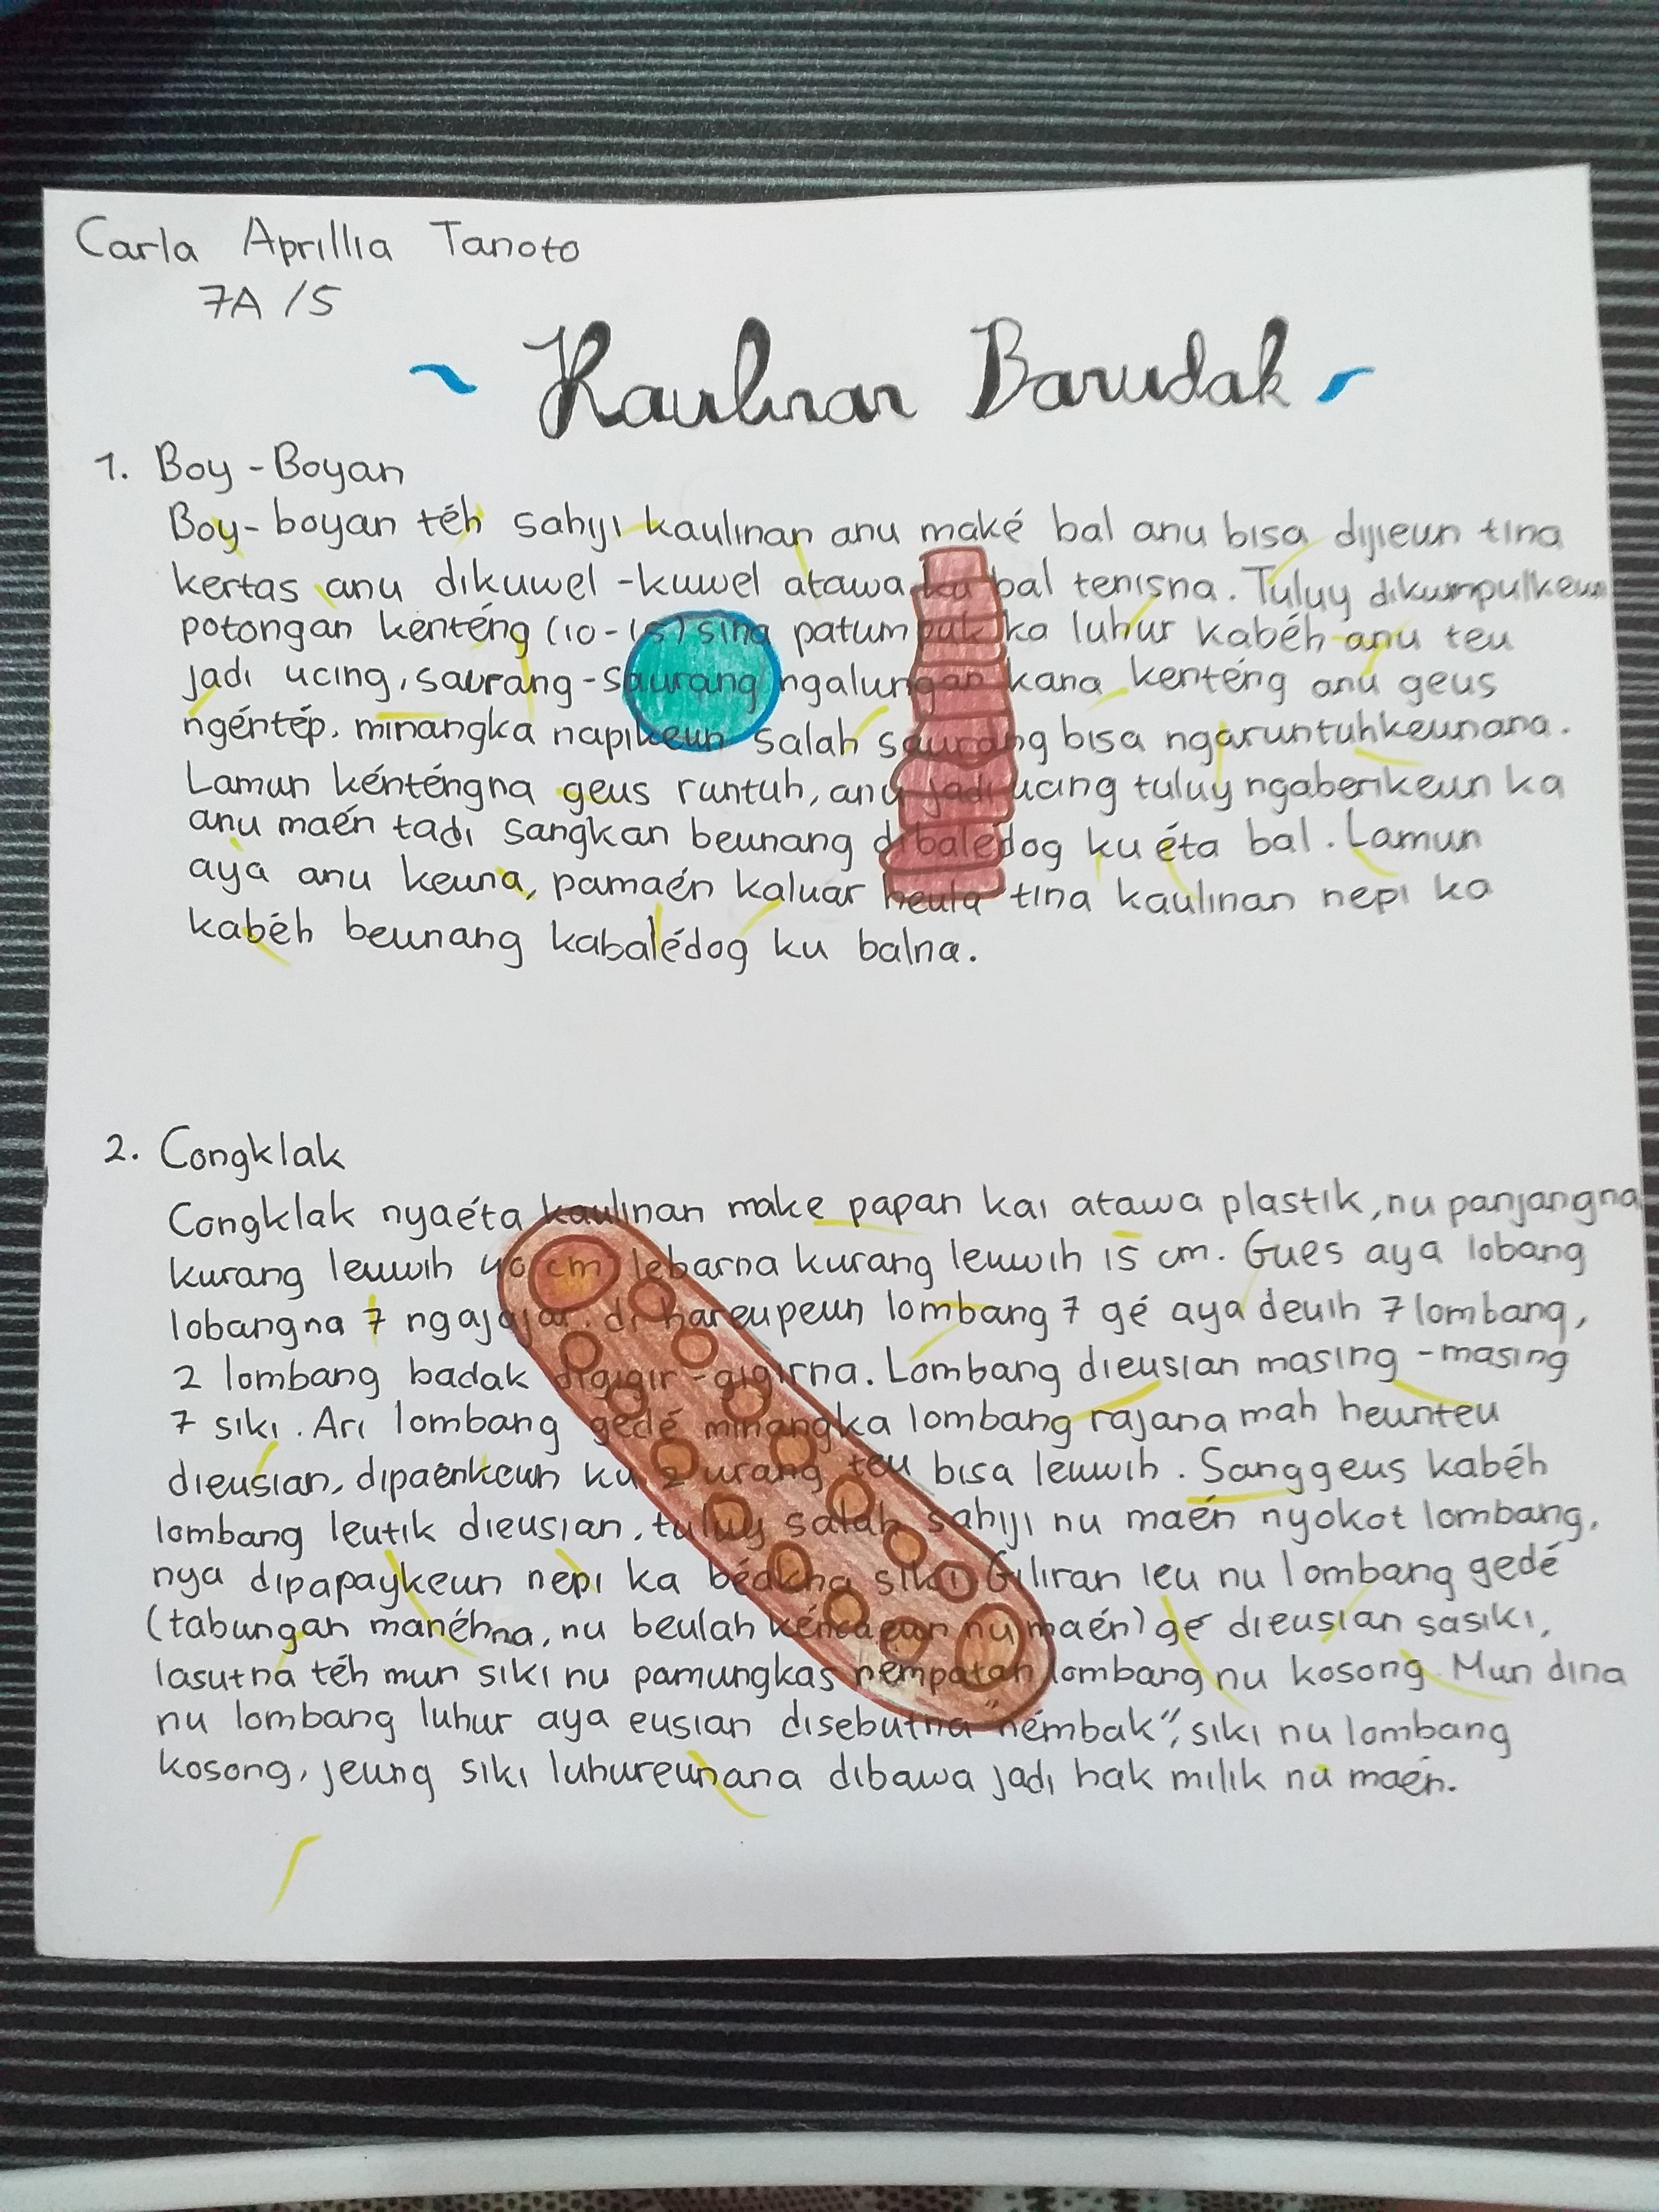 Carla Aprillia Tanoto
7A / 5
~ Kaulinan Barudak ~
1. Boy - Boyan
Boy- boyan téh sahiji kaulinan anu maké bal anu bisa dijieun tina
kertas anu dikuwel -kuwel atawa ku bal tenisna. Tuluy dikumpulkeun
potongan kénténg (10-15) sina patumpuk ka luhur kabéh anu teu
jadi ucing, saurang-saurang ngalungan kana kenténg anu geus
ngéntép. minangka napikeun salah saurang bisa ngaruntuhkeunana.
Lamun kénténgna geus runtuh, anu jadi ucing tuluy ngaberikeun ka
anu maén tadi sangkan beunang dibalédog ku éta bal. Lamun
aya anu keuna, pamaén kaluar heula tina kaulinan nepi ka
kabéh beunang kabalédog ku balna.
2. Congklak
Congklak nyaéta kaulinan make papan kai atawa plastik, nu panjangna
kurang leuwih 40 cm lebarna kurang leuwih 15 cm. Gues aya lobang
lobangna 7 ngajajar. di hareupeun lombang 7 gé aya deuih 7 lombang,
2 lombang badak digigir-gigirna. Lombang dieusian masing -masing
7 siki. Ari lombang gedé minangka lombang rajana mah heunteu
dieusian, dipaénkeun ku 2 urang teu bisa leuwih. Sanggeus kabéh
lombang leutik dieusian, tuluy salah sahiji nu maén nyokot lombang,
nya dipapaykeun nepi ka béakna siki. Giliran ieu nu lombang gedé
(tabungan manéhna, nu beulah kéncaeun nu maén) gé dieusian sasiki,
lasutna téh mun siki nu pamungkas nempatan lombang nu kosong. Mun dina
nu lombang luhur aya eusian disebutna "némbak", siki nu lombang
kosong, jeung siki luhureunana dibawa jadi hak milik nu maén.